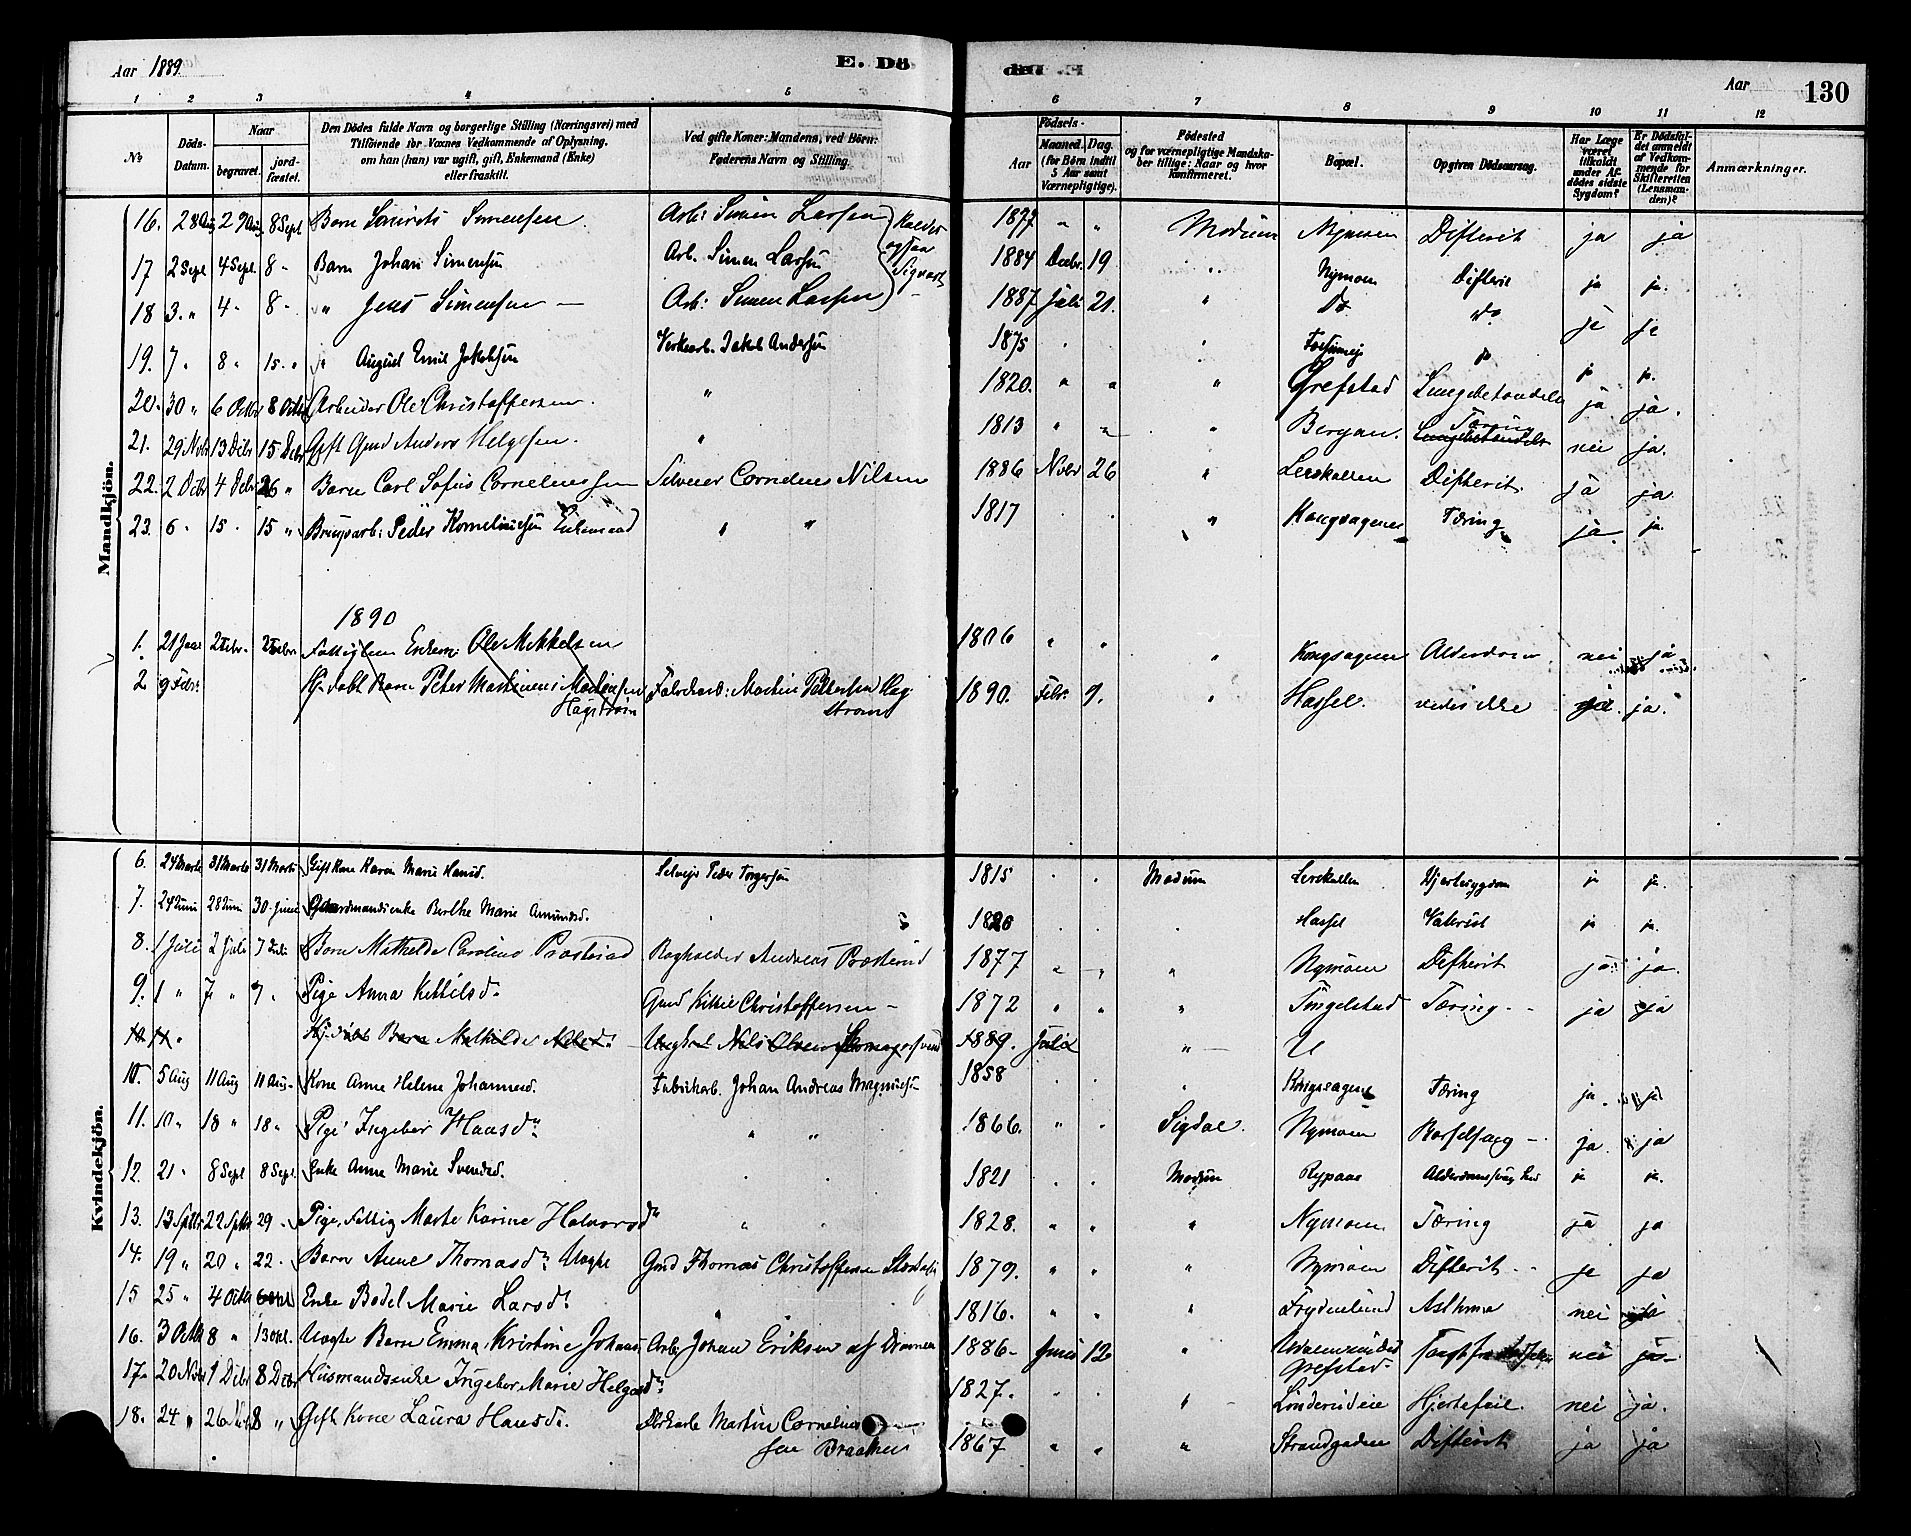 Aar 1889
E. Dö
de.
Aar
130
1 2 3 4 5 6 7 8 9 10 11 12
No
Döds-Datum.
Naar
begravet.
jord-fæstet.
Den Dödes fulde Navn og borgerlige Stilling (Næringsvei) med
Tilföiende for Voxnes Vedkommende af Oplysning,
om han (hun) var ugift, gift, Enkemand (Enke)
eller fraskilt.
Ved gifte Koner: Mandens, ved Börn:
Faderens Navn og Stilling.
Födsels-
Aar
Maaned. Dag.
(for Börn indtil
5 Aar samt
Værnepligtige).
Födested
og for værnepligtige Mandska-
ber tillige: Naar og hvor
konfirmeret.
Bopæl.
Opgiven Dödsaarsag.
Har Læge
været
tilkaldt
under Af-
dödes sidste
Sygdom?
Er Dödsfal-
det anmeldt
af Vedkom-
mende for
Skifteretten
(Lensman-
den)?
Anmærkninger.
Mandkjön.
16. 28 Aug 29 Aug 8 Sept Barn Simensen Arb: Simen Larsen 1877 " " Modum Nymoen Difterit ja ja
17 2 Sept 4 Sept. 8 " Barn Johan Simensen Arb. Simen Larsen 1884 Decbr. 19 " Nymoen Difterit ja ja.
18 3. " 4 " 8 " " Jens Simensen — Arb: Simen Larsen 1887 Juli 21. " Do do ja ja
kaldes ogsaa Sigvart
19. 7 " 8 " 15. " " August Emil Jakobsen Verksarb. Jakob Andersen 1875 " " " do ja ja.
20. 30 " 6 Octbr 8 Octbr Arbeider Ole Christoffersen. " 1820. " " " Grefstad Lungebetændelse ja ja.
21. 29 Novbr 13 Debr 15 Debr Gift Gmd Anders Helgesen. " 1813 " " " Bergan. Tæring nei ja.
22. 2 Debr 4 Debr 26 " Barn Carl Sofus Corneliussen Selveier Cornelius Nilsen 1886 Novbr 26 " Lerskallen Difterit. ja ja
23. 6 " 15 " 15 " Brugsarb: Peder Korneliussen Enkemand " " 1817 " " " Kongsagene Tæring ja ja.
1890
1. 21 Jan 2 Febr. 2 Febr. Fattiglem Enkem: Ole Mikkelsen 1806 " " " Kongsagene Alderdom nei ja
2 9 Febr. Hj. døbt Barn Peter Martinius Martinsen Hagstrøm Fabrikarb: Martin Pettersen Hagstrøm 1890. Febr. 7. " Hassel. vides ikke ja.
Kvindekjön.
6. 24 Marts 31 Marts 31 Marts Gift Kone Karen Marie Hansd. Selveier Peder Torgersen 1815 " " Modum Lerskallen Hjertesygdom ja ja.
7. 24 Juni 28 Juni 30 Juni Gaardmandsenke Berthe Marie Amundsd. " 1820 " " " Hassel ja ja.
8. 1 Juli 2 Juli 7 Juli Barn Mathilde Caroline Præsterud Bogholder Andreas Præsterud 1877 " " " Nymoen Difterit ja ja.
9. 1 " 7 " 7 " Pige Anna Kittilsd. Gmd Kittil Christoffersen — 1872 " " " Tingelstad Tæring. ja ja
Hj. døbt Barn Mathilde Nilsd. Nils Olsen 1889. Juli "
10. 5 Aug 11 Aug 11 Aug. Kone Anne Helene Johannesd. Fabrikarb. Johan Andreas Magnussen 1858 " " " Kongsagene Tæring ja. ja.
11. 10 " 18 " 18 " Pige Ingebor Hansd. " " 1866. " " Sigdal. Nymoen Barselseng — ja. ja
12. 21 " 8 Sept 8 Sept. Enke Anne Marie Svendsd. " " 1821 " " Modum Rypaas Alderdomssvaghed ja ja.
13. 13 Septbr 22 Septbr 29 " Pige, Fattig Marte Karine Halvorsd. " " 1828. " " " Nymoen Tæring ja ja
14. 19 " 20 " 22 " Barn Anne Thomasd. Uægte Gmd Thomas Christoffersen 1879. " " " Nymoen Difterit ja ja
15 25 " 4 Octbr Enke Bodel Marie Larsd. " 1816. " " " Frydenlund Asthma nei ja
16. 3 Octbr 8 " 13 Octbr. Uægte Barn Emma Kristine Johans Arb. Johan Eriksen af Drammen 1886 Juni 12 " Grefstad. nei ja
17. 20 Novbr 1 Debr 8 Debr Husmandsenke Ingebor Marie Helgesd. 1827. " " " Linderudeie Hjertefeil. nei ja.
18. 24 " 26 Novbr 8 " Gift Kone Laura Hansd. Martin Corneliussen Braaten 1867 " " " Strandgaden Difterit ja ja